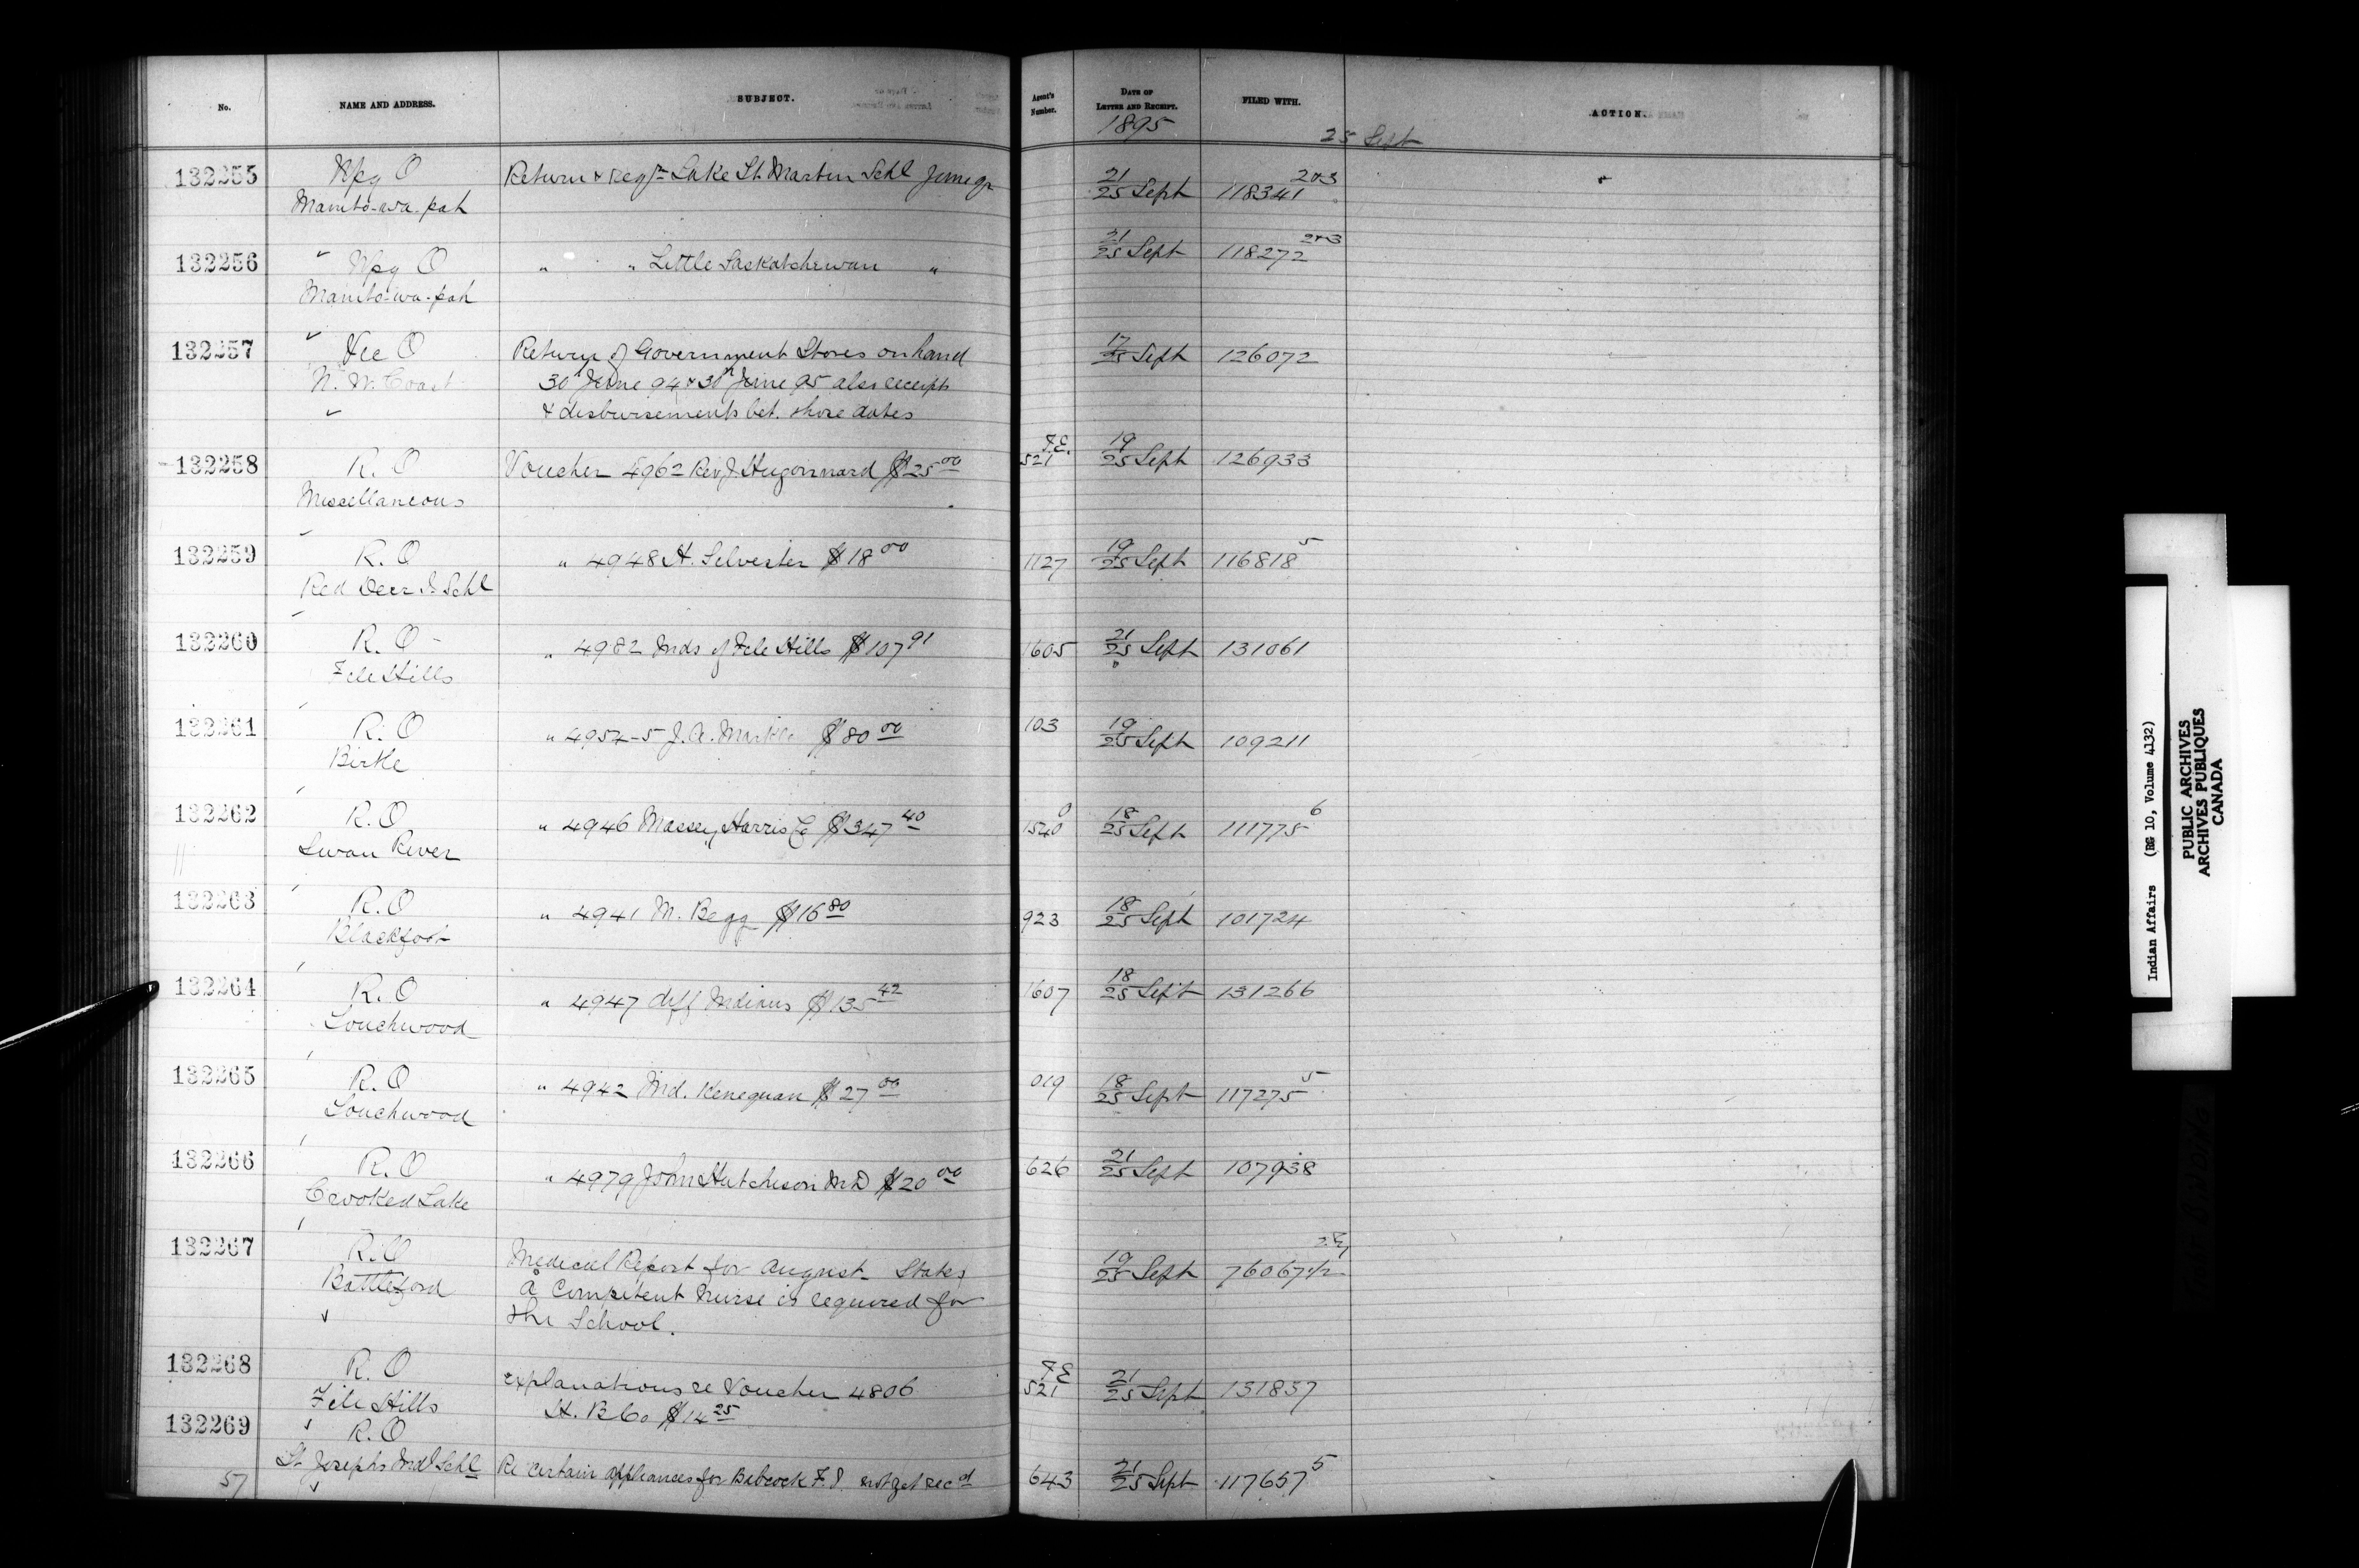 No. NAME AND ADDRESS. SUBJECT. Agent's Number. DATE OF LETTER AND RECEIPT. FILED WITH. ACTION.
1895 25 Sept
132255 Wpg O Return & Regr Lake St. Martin Schl June qr 21/25 Sept 118341 2&3
Manito-wa-pah
132256 Wpg O " " Little Saskatchewan " 21/25 Sept 118272 2&3
Manito-wa-pah
132257 Vic O Return of Government Stores on hand 17/25 Sept 126072
N. W. Coast 30th June 94 & 30th June 95 also receipts
& disbursements bet. those dates
132258 R. O Voucher 4962 Rev J. Hugonnard $25 00 F.E. 521 19/25 Sept 126933
Miscellaneous
132259 R. O " 4948 H. Silvester $18 00 1127 19/25 Sept 116818 5
Red Deer I. Schl
132260 R. O " 4982 Inds of File Hills $107 91 1605 21/25 Sept 131061
File Hills
132261 R. O " 4954-5 J. A. Markle $80 00 103 19/25 Sept 109211
Birtle
132262 R. O " 4946 Massey Harris Co $347 40 1540 0 18/25 Sept 111775 6
Swan River
132263 R. O " 4941 M. Begg $16 80 923 18/25 Sept 101724
Blackfoot
132264 R. O " 4947 diff Indians $135 42 1607 18/25 Sept 131266
Touchwood
132265 R. O " 4942 Ind. Kenequan $27 00 019 18/25 Sept 117275 5
Touchwood
132266 R. O " 4979 John Hutcheson M.D $20 00 626 21/25 Sept 107938
Crooked Lake
132267 R. O Medical Report for August States 19/25 Sept 76067 1/2
Battleford a Competent Nurse is required for
the School.
132268 R. O explanations re Voucher 4806 F E 521 21/25 Sept 131837
File Hills H. B Co $14 25
132269 R. O
St Josephs Indl Schl Re certain appliances for Babcock F. I. not yet recd 643 21/25 Sept 117657 5
57
Indian Affairs (RG 10, Volume 4132)
PUBLIC ARCHIVES
ARCHIVES PUBLIQUES
CANADA